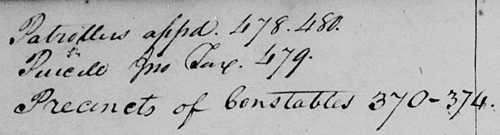 Patrollers appd. 478. 480.
Jno Tax. 479.
Precincts of Constables 370-374.